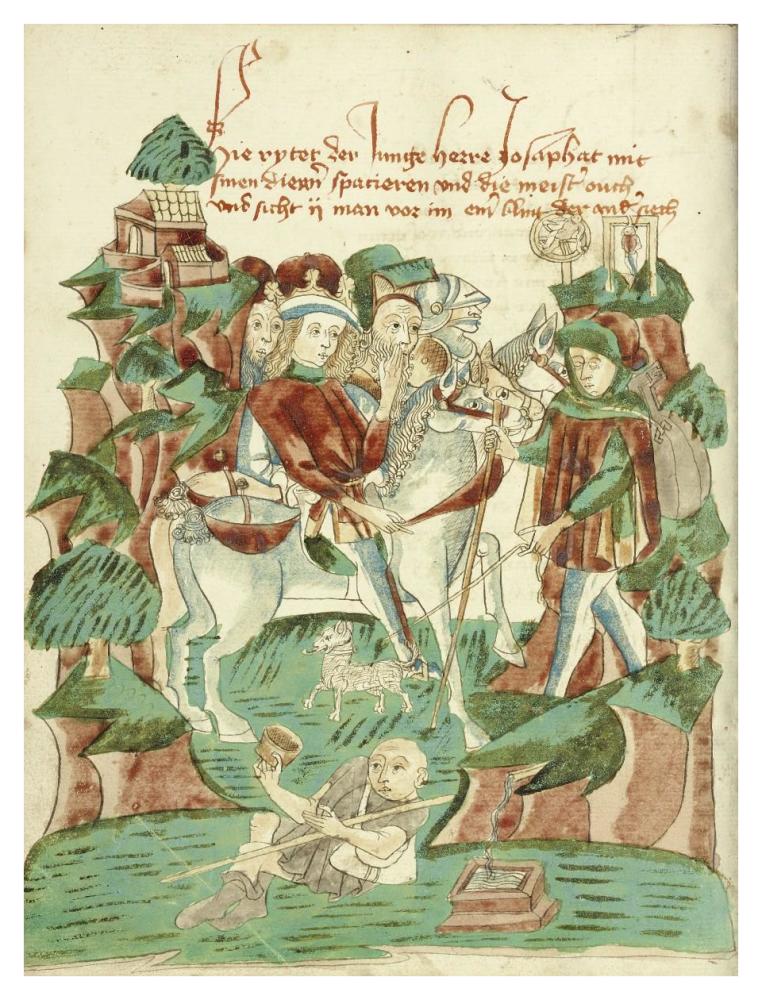 Hie rytet der Junge herre Josaphat mit
sinen diewn spacieren vnd die meist ouch
vnd sicht ij man vor im ein blint der and siech